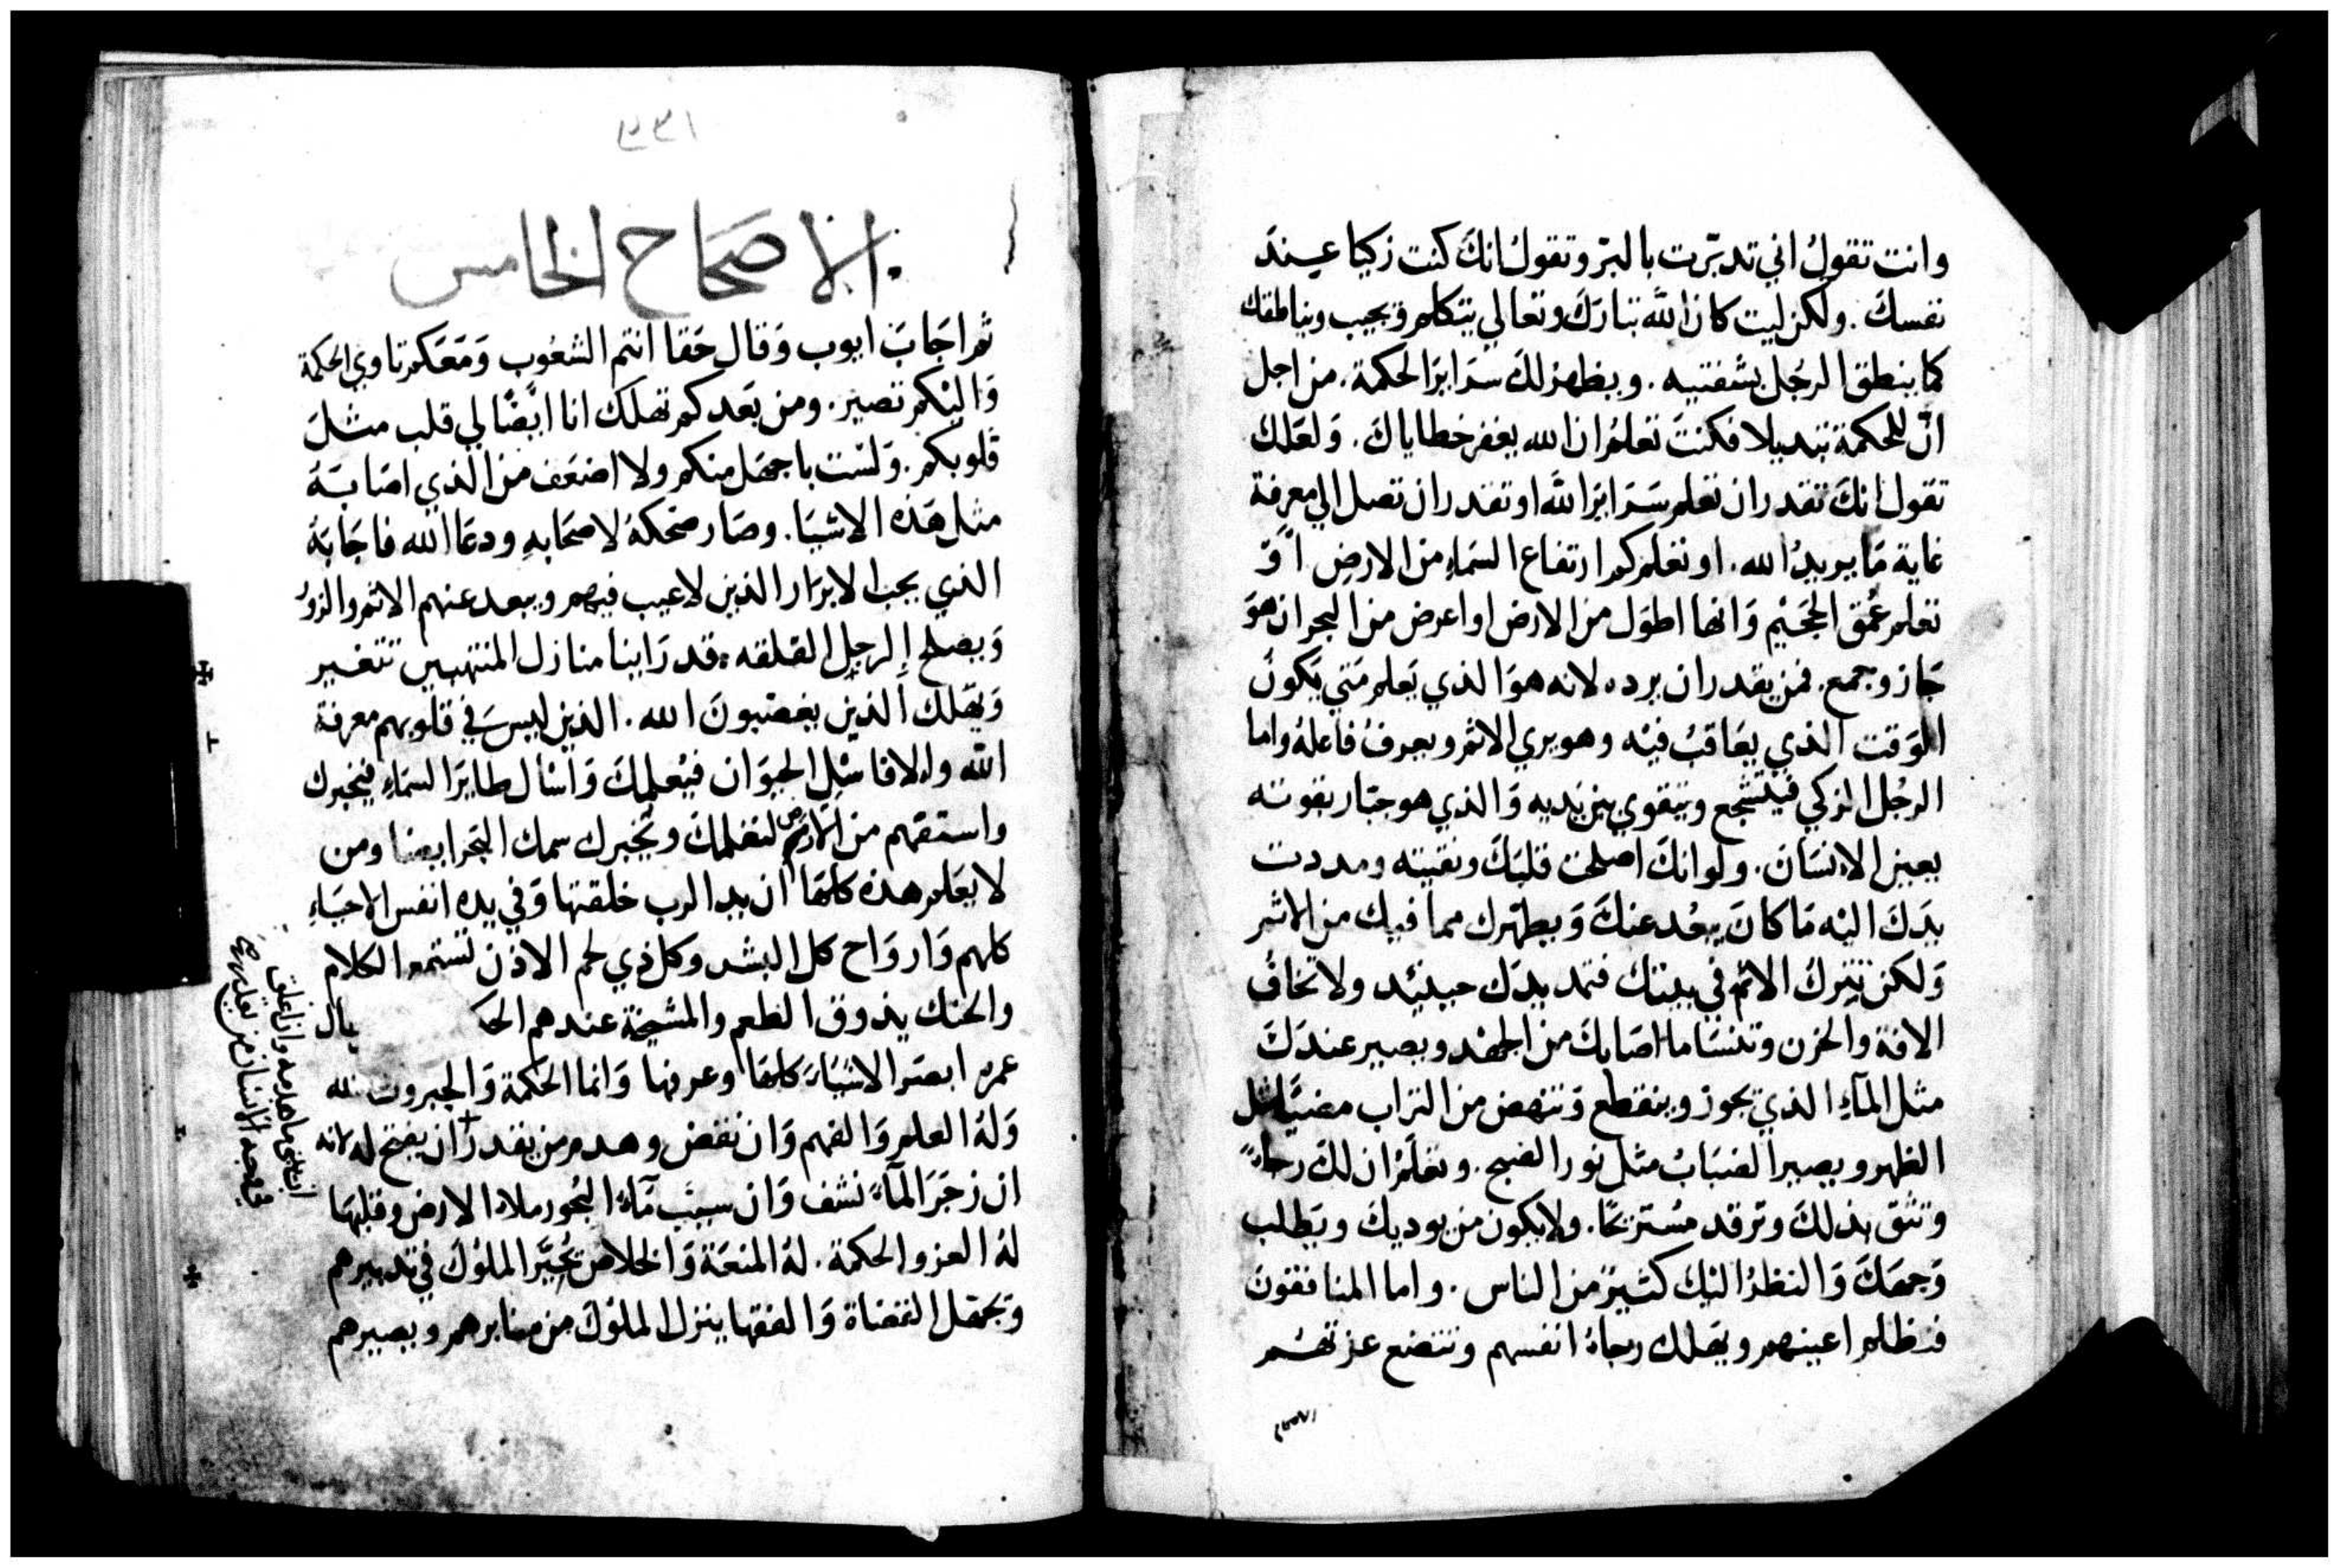 وانت تقولُ اني تدبّرت بالبرّ وتقولُ انكَ كنت زكيا عندَ
نفسكَ . ولكن ليت كان اللّه تبارَكَ وتعالي يتكلم ويجيب ويناطقك
كما ينطق الرجُل بشفتيه . ويظهرُ لكَ سرَايرَ الحكمة . من اجل
انّ للحكمة تبديلا فكنتَ تعلمُ ان الله يغفر خطاياكَ . وَلعَلك
تقول انكَ تقدر ان تعلم سَرَايرَ اللّه او تقدر ان تصل الي معرفة
غاية مَا يريدُ الله . او تعلم كم ارتفاع السَماءِ من الارضِ اَوْ
تعلم عُمق الجَحيْم وَانها اطوَل من الارض او اعرض من البحر ان هوَ
جَاز وجمع . فمن يقدر ان يرده لانه هوَ الذي يَعلم مَتي يَكونُ
الوَقت الذي يعَاقبُ فيْه وهو يري الاثم ويعرفُ فاعلهُ واما
الرجُل الزكي فيتشجع ويتقوي بين يَديه وَالذي هو جبّار بقوته
يعين الانسَان . ولو انكَ اصلحت قلبَكَ ونقيته ومددت
يدَكَ اليْه مَا كانَ يبعُد عنكَ وَيطهّرك مما فيك من الاثم
وَلكن تتركُ الاثم في بيتك فتمد يدَك حينئِد ولا تخافُ
الافة والحزن وتنسَا ما اصَابكَ من الجهْد ويصير عندَكَ
مثل المآءِ الذي يجوز وينقطع وَتنهض من التراب مضيًا مثل
الظهر ويصير الضبَابُ مثل نور الصبح . وتعلَمُ ان لكَ رجاءً
وتثق بذلكَ وترقد مسُتريحًا . ولا يكون من يوديك ويَطلب
وَجهَكَ وَالنظرُ اليْك كثيرٌ من الناس . واما المنافقونَ
فتظلم اعينهم ويهلك رجاءُ انفسهم وتتضع عزتهُم
الاصحاح الخامس
ثم اجَابَ ايوب وَقال حَقا انتم الشعُوب وَمَعَكم تاوي الحكمة
وَاليْكم تصير . ومن بَعدكم تهلك انا ايَضًا لي قلب مثلَ
قلوبكم . وَلسْت باجهَل منكم ولا اضعَف من الذي اصَابتهُ
مثل هَذه الاشيَا . وصَار ضحكةً لاصحَابهِ ودعَا الله فاجَابهُ
الذي يحب الابرَار الذين لاعيب فيهم ويبعد عنهم الاثم والزورُ
وَيصلح الرجل القلقه . قد رَاينا منازل المنتهبين تتغير
وَيهلك الذين يغضبونَ الله . الذين ليسَ في قلوبهم معرفة
اللّه والا فاسْل الحيوَان فيعْلمكَ وَاسْال طايرَ السمَاءِ فيخبرك
واستفهم من الارض لتعلمكَ ويخبرك سمك البَحر ايضا ومن
لايعَلم هذه كلهَا ان يد الرب خلقتها وَفي يده انفس الاحيَاءِ
كلهم وَاروَاح كل البشر وكل ذي لحم الاذن تستمع الكلام
والحنك يذوق الطعم والمشيخة عندهم
عمره ابصَر الاشيَاءَ كلهَا وعرفها وَانما الحكمة وَالجبروت لله
وَلهُ العلم وَالفهم وَان نقض وهدم من يقدر ان يفتح له لانه
ان زجَرَ المآءَ نشف وَان سيبَ مَآءَ البحُور ملاه الارض وقلبهَا
لهُ العز والحكمة . لهُ المنعَة وَالخلاص يحُيّر الملوُك في تدبيرهم
ويجهل القضاة وَالفقها ينزل الملوُكَ من منابرهم ويصيرهم